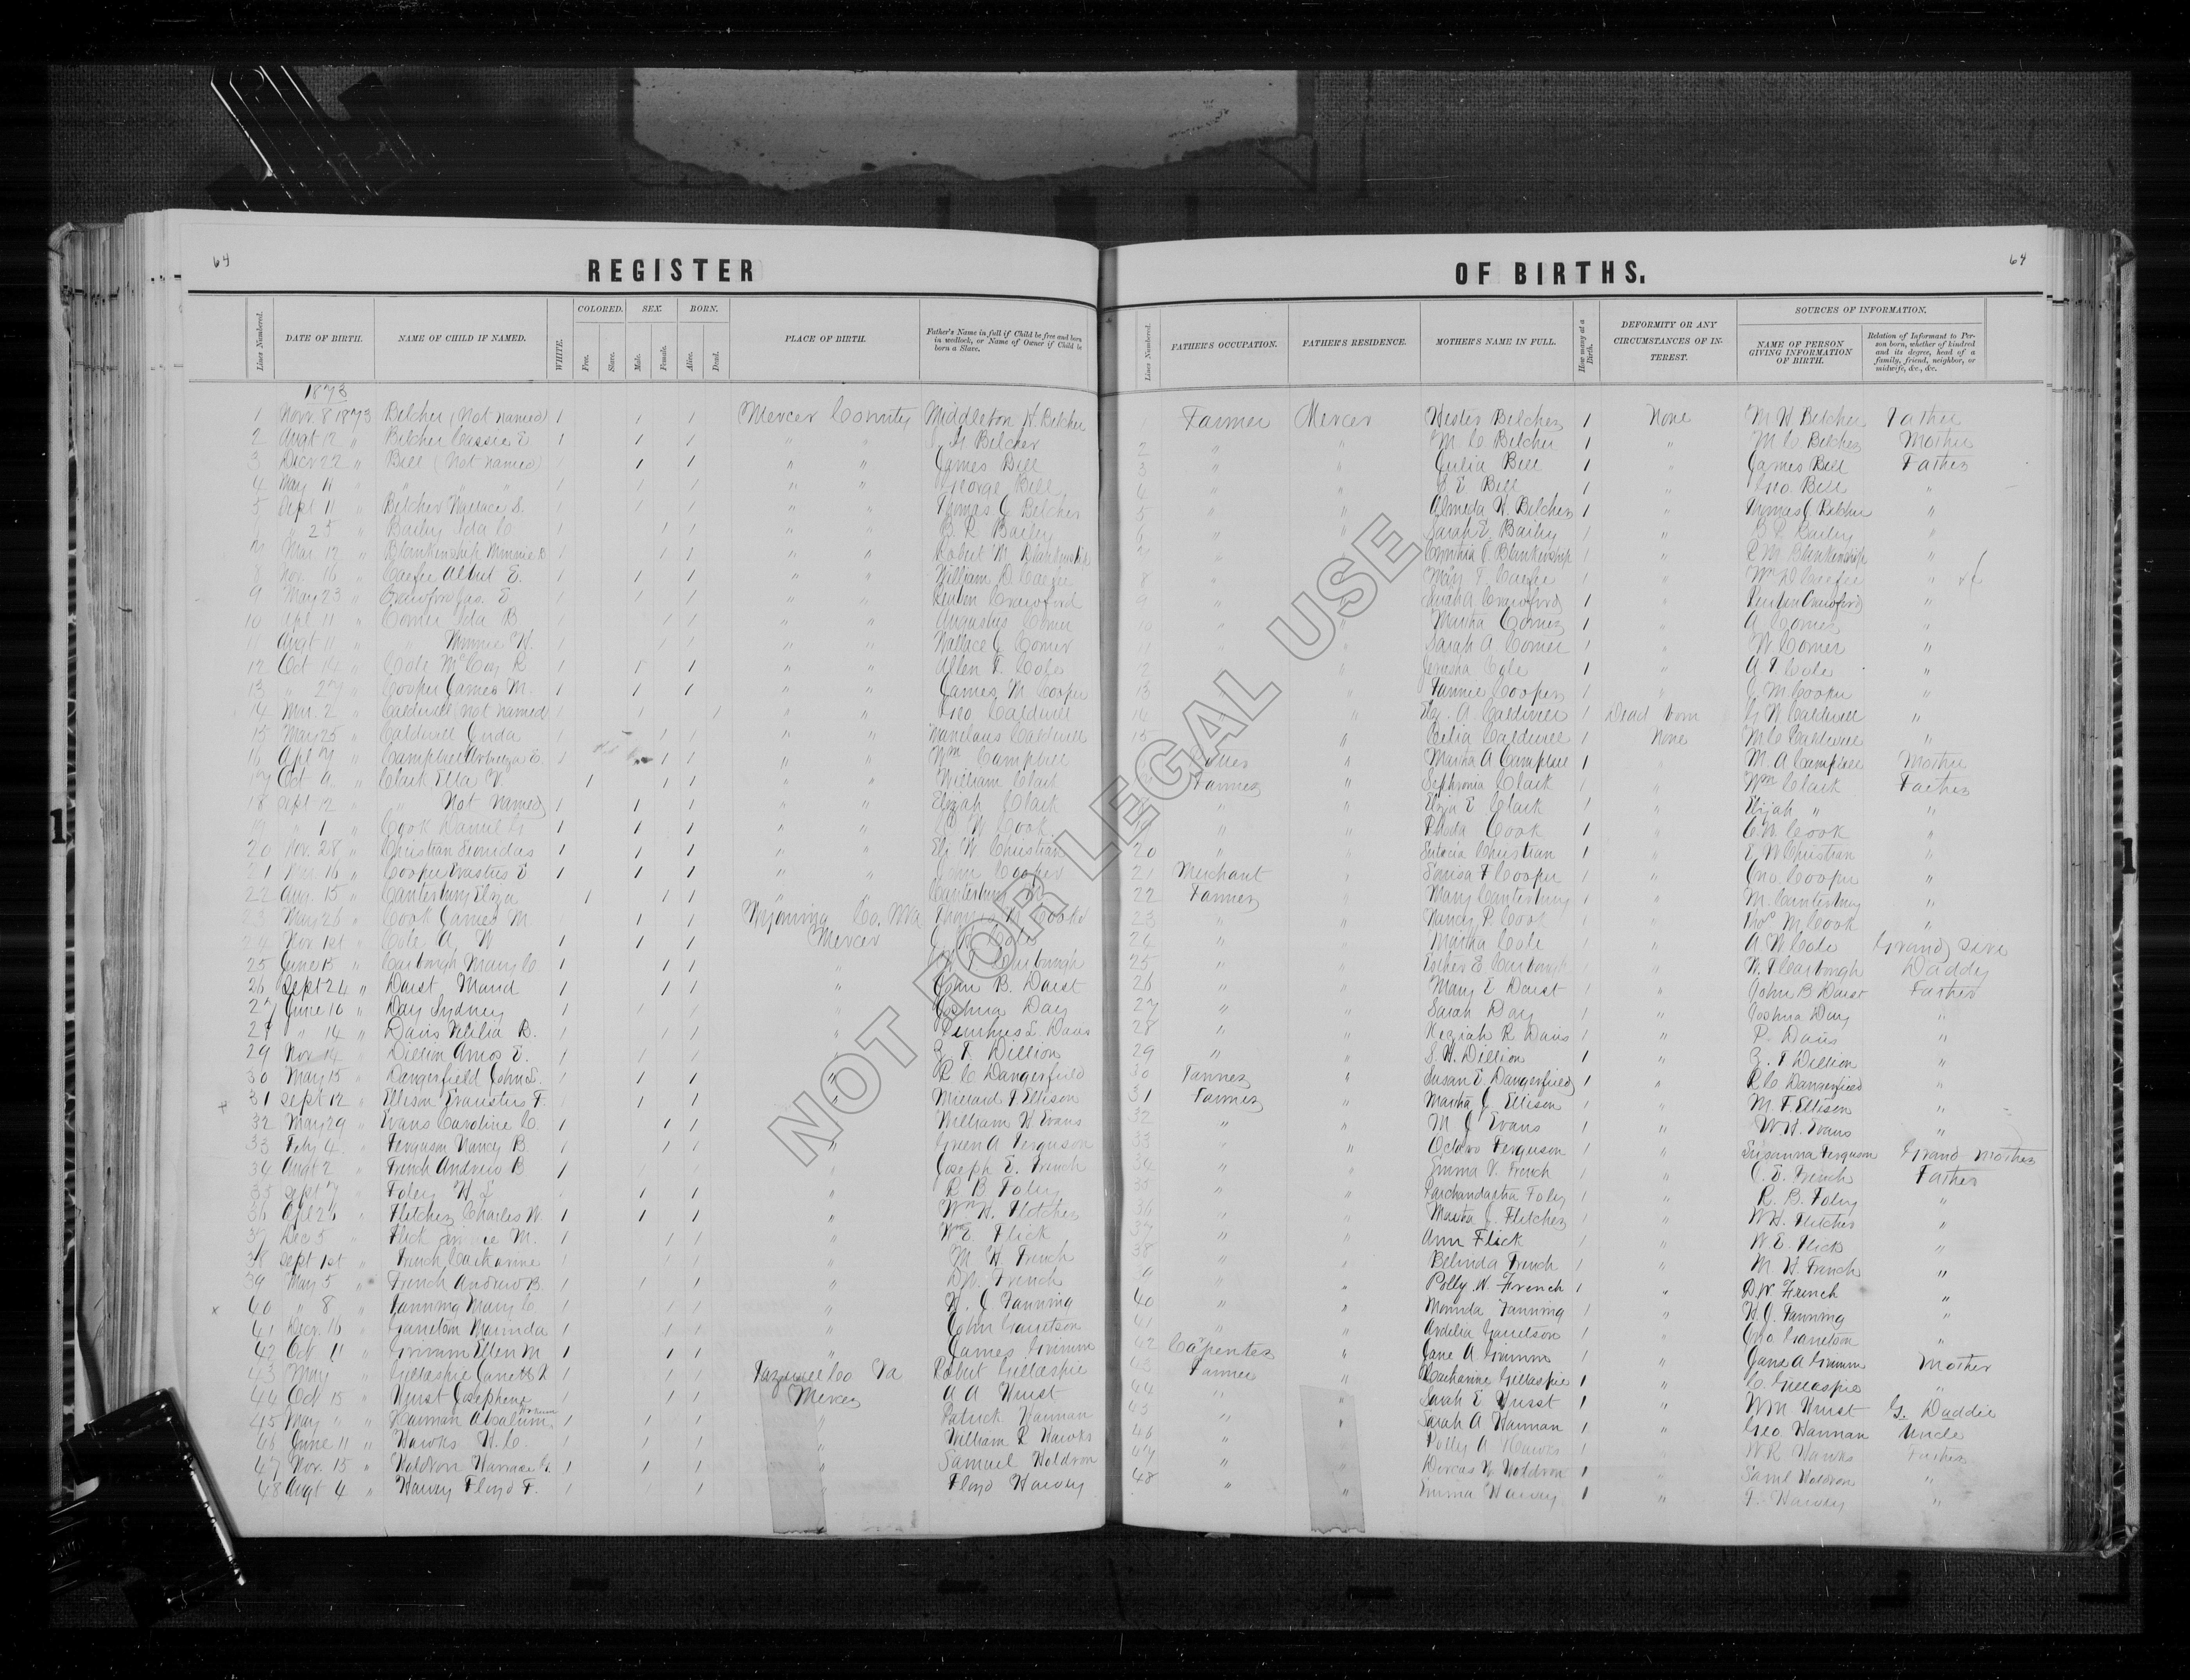 64
REGISTER
OF BIRTHS.
64
Lines Numbered.
DATE OF BIRTH.
NAME OF CHILD IF NAMED.
WHITE.
COLORED.
Free.
Slave.
SEX.
Male.
Female.
BORN.
Alive.
Dead.
PLACE OF BIRTH.
Father's Name in full if Child be free and born in wedlock, or Name of Owner if Child be born a Slave.
Lines Numbered.
FATHER'S OCCUPATION.
FATHER'S RESIDENCE.
MOTHER'S NAME IN FULL.
How many at a Birth.
DEFORMITY OR ANY CIRCUMSTANCES OF INTEREST.
SOURCES OF INFORMATION.
NAME OF PERSON GIVING INFORMATION OF BIRTH.
Relation of Informant to Person born, whether of kindred and its degree, head of a family, friend, neighbor, or midwife, &c., &c.
1873
1 Novr. 8 1873 Belcher (Not named) 1 1 1 Mercer County Middleton H. Belcher 1 Farmer Mercer Hester Belcher 1 None M H Belcher Father
2 Augt 12 " Belcher Cassie E 1 1 1 " " H Belcher 2 " " M C Belcher 1 " M C Belcher Mother
3 Decr 22 " Bell (Not named) 1 1 " " James Bell 3 " " Julia Bell 1 " James Bell Father
4 May 11 " " " 1 1 1 " " George Bell 4 " " E Bell 1 " Geo. Bell "
5 Sept 11 " Belcher Wallace S. 1 1 " " Thomas J Belcher 5 " " Almeda W. Belcher 1 " Thomas J Belcher "
6 " 25 " Baily Ida C 1 1 1 " " B R Bailey 6 " " Sarah E. Bailey 1 " B R Bailey "
7 Mar. 12 " Blankenship Minnie B 1 1 1 " " Robert M Blankenship 7 " " Cynthia Blankenship 1 " R M Blankenship "
8 Nov. 16 " Albert E. 1 1 1 " " William D 8 " " May F. 1 " Wm D "
9 May 23 " Crawford Jas. E 1 1 1 " " Reuben Crawford 9 " " Sarah A. Crawford 1 " Reuben Crawford "
10 Apl 11 " Comer Ida B 1 1 1 " " Augustus Comer 10 " " Martha Comer 1 " A Comer "
11 Augt 11 " " Minnie W. 1 1 1 " " Wallace J Comer 11 " " Sarah A Comer 1 " W Comer "
12 Oct 14 " Cole McCoy R 1 1 1 " " Allen T. Cole 12 " " Jerusha Cole 1 " A T Cole "
13 " 27 " Cooper James M. 1 1 1 " " James M Cooper 13 " Fannie Cooper 1 " J M Cooper "
14 Mar. 2 " Caldwell Not named 1 1 1 " " Geo Caldwell 14 " " Elz. A Caldwell 1 Dead born G W Caldwell "
15 May 25 " Caldwell Juda 1 1 1 " " Caldwell 15 " Celia Caldwell 1 None M C Caldwell "
16 Apl 7 " Campbell E. 1 1 1 " " Wm Campbell " Martha A Campbell 1 M. A Campbell Mother
17 Oct 9 " Clark Ella V. 1 1 1 " " William Clark Farmer " Sephronia Clark 1 " Wm Clark Father
18 Sept 12 " " Not Named 1 1 1 " " Elijah Clark " " Eliza E Clark 1 " Elijah " "
19 " 1 " Cook Daniel G 1 1 1 " " W Cook " " Rhoda Cook 1 " C W Cook "
20 Nov. 28 " Christian Leonidas 1 1 1 " " Eli W Christian 20 " " Christian 1 " E W Christian "
21 Mar. 16 " Cooper Erastus E 1 1 1 " " John Cooper 21 Merchant " Louisa F Cooper 1 " Jno. Cooper "
22 Aug. 15 " Canterbury Eliza 1 1 1 " " Canterbury M 22 Farmer " Mary Canterbury 1 " M. Canterbury "
23 May 26 " Cook James M. 1 1 1 Wyoming Co. WVa Thomas M Cook 23 " " Nancy P. Cook 1 " Thos M. Cook "
24 Nov 1st " Cole A W 1 1 1 Mercer Cole 24 " " Martha Cole 1 " A. W Cole Grand Sire
25 June 15 " Mary C 1 1 1 " 25 " " Esther E. 1 " W. T Daddy
26 Sept 24 " Daist Maud 1 1 1 " John B. Daist 26 " " Mary E Daist 1 " John B Daist Father
27 June 16 " Day Sydney 1 1 " Joshua Day 27 " " Sarah Day 1 " Joshua Day "
28 " 14 " Davis B. 1 1 1 " L. Davis 28 " " Keziah R Davis 1 " P. Davis "
29 Nov 14 " Dillion Amos E. 1 1 1 " Z. T. Dillion 29 " " S. H. Dillion 1 " Z. T Dillion "
30 May 15 " Dangerfield John S. 1 1 1 " R C Dangerfield 30 Tanner " Susan E. Dangerfield 1 " R C Dangerfield "
31 Sept 12 " Ellison Evaristus F. 1 1 " Millard F Ellison 31 Farmer " Martha J Ellison 1 " M. F. Ellison "
32 May 29 " Evans Caroline C. 1 1 1 " William H Evans 32 " " M J Evans 1 " W. H. Evans "
33 Feby 4 " Ferguson Nancy B. 1 1 1 " Green A Ferguson 33 " " Ferguson 1 " Susanna Ferguson Grand Mother
34 Augt 2 " French Andrew B 1 " Joseph E. French 34 " " Emma V. French 1 " J. E. French Father
35 Sept 7 " Foley H L 1 1 " R B Foley 35 " " Foley 1 " R. B. Foley "
36 Apl 26 " Fletcher Charles W. 1 1 1 " Wm H. Fletcher 36 " " Martha J. Fletcher 1 " W H. Fletcher "
37 Dec 5 " Flick M. 1 1 1 " Wm E Flick 37 " " Ann Flick 1 " W. E. Flick "
38 Sept 1st " French Catharine 1 1 1 " M. H French 38 " " Belinda French 1 " M. H. French "
39 May 5 " French Andrew B. 1 1 1 " D W. French " " Polly W. French 1 " D W French "
40 " 8 " Fanning Mary C. 1 1 1 " H. J Fanning 40 " " Morinda Fanning 1 " H. J. Fanning "
41 Decr. 16 " Garretson Marinda 1 1 1 " John Garretson 41 " " Ardelia Garretson 1 " Jno. Garretson "
42 Oct 11 " Grimm Ellen M. 1 1 1 " James Grimm 42 Carpenter " Jane A. Grimm 1 " Jane A Grimm Mother
43 May " Gillaspie 1 1 1 Tazewell Co Va Robert Gillaspie 43 Farmer " Catharine Gillaspie 1 " C. Gillaspie "
44 Oct 15 " Hurst Josephene 1 1 1 Mercer A A Hurst 44 " " Sarah E Hurst 1 " Wm Hurst G. Daddie
45 May " " Harman Absalum 1 1 1 " Patrick Harman 45 " Sarah A Harman 1 " Geo Harman Uncle
46 June 11 " Hawks H. C. 1 1 1 " William R Hawks 46 " Polly A Hawks 1 W R Hawks Father
47 Nov. 15 " Holdron G. 1 1 1 " Samuel Holdron 47 " " Dorcas W Holdron 1 " Saml Holdron "
48 Augt 4 " Harvy Floyd F. 1 1 " Floyd Harvey 48 " " Emma Harvey 1 " F. Harvey "
NOT FOR LEGAL USE